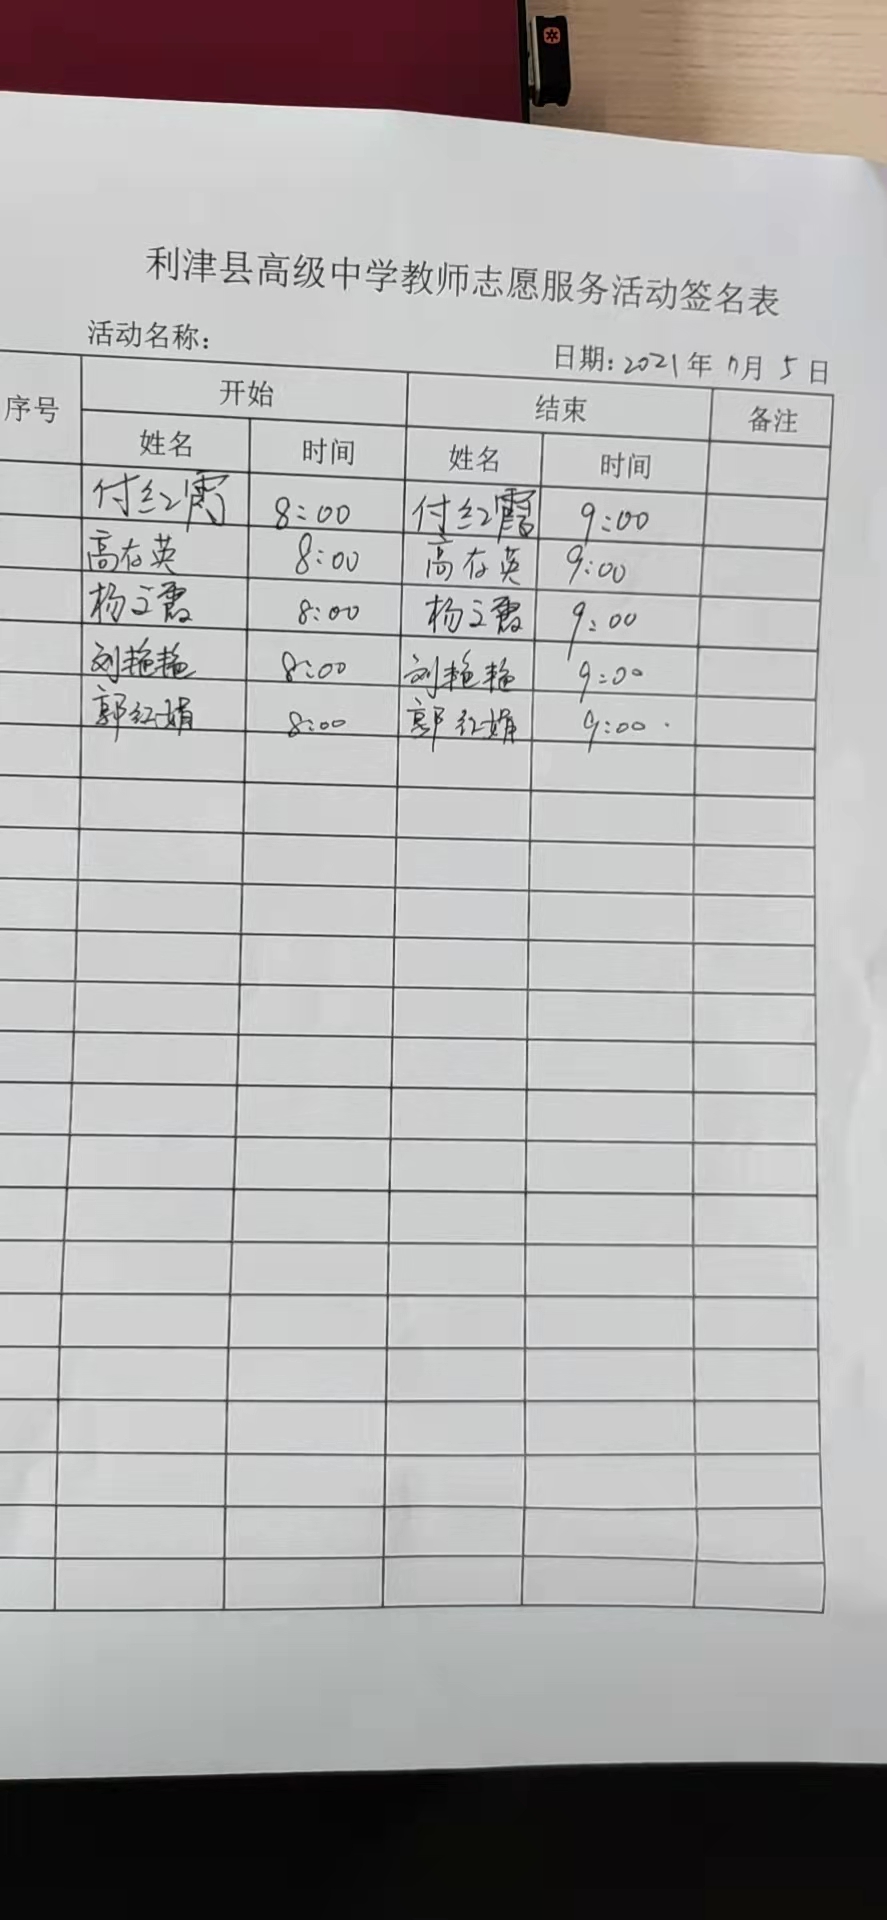 利津县高级中学教师志愿服务活动签名表
活动名称: 日期: 2021年 7月 5日
序号 开始 结束 备注
姓名 时间 姓名 时间
付红霞 8:00 付红霞 9:00
高存英 8:00 高存英 9:00
杨立霞 8:00 杨立霞 9:00
刘艳艳 8:00 刘艳艳 9:00
郭红娟 8:00 郭红娟 9:00